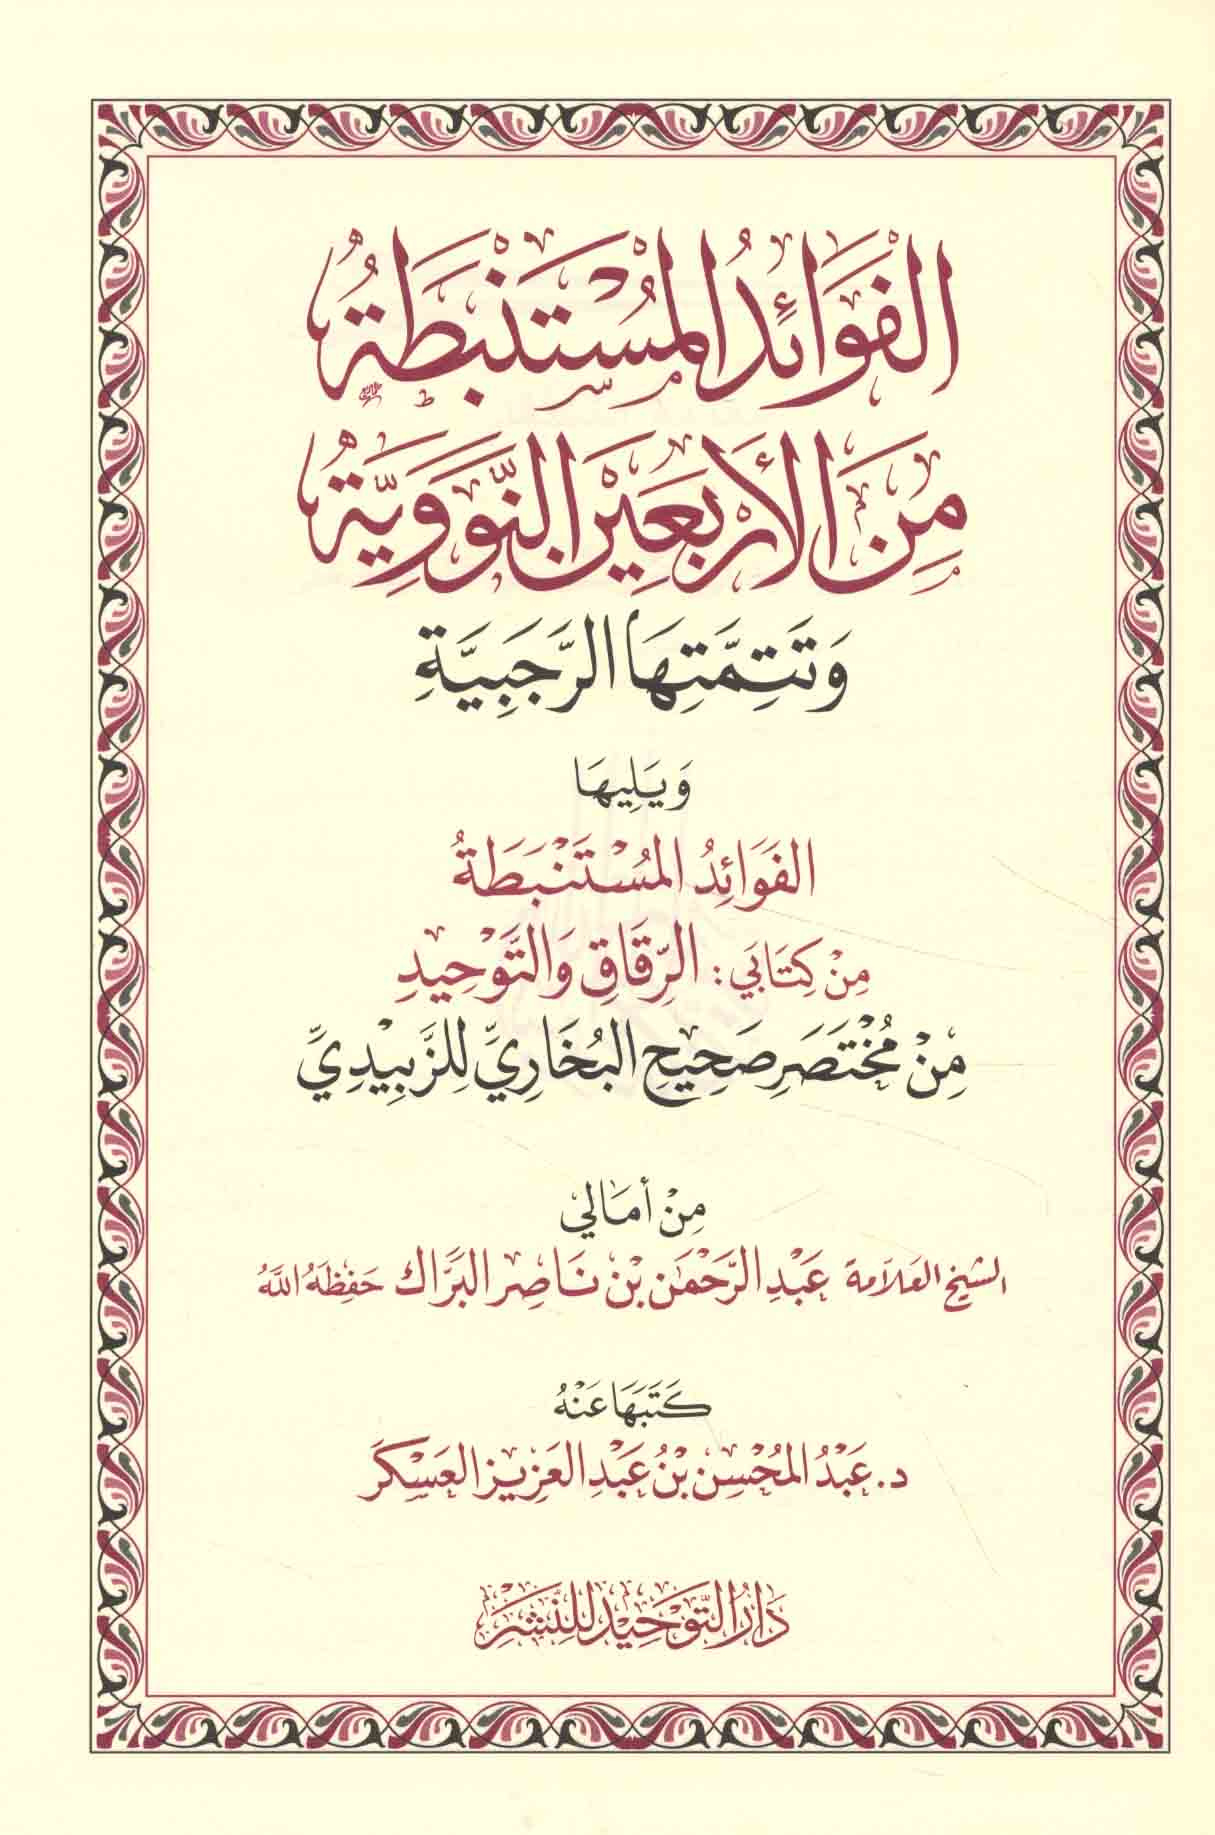 الفَوَائِدُ المُسْتَنْبَطَةُ
مِنَ الأَرْبَعِينَ النَّوَوِيَّةِ
وَتَتِمَّتِهَا الرَّجَبِيَّةِ
وَيَلِيهَا
الفَوَائِدُ المُسْتَنْبَطَةُ
مِنْ كِتَابَي: الرِّقَاقِ وَالتَّوْحِيدِ
مِنْ مُخْتَصَرِ صَحِيحِ البُخَارِيِّ لِلزَّبِيْدِيِّ
مِنْ أَمَالِي
الشيخ العلامة عَبْدِ الرَّحْمَنِ بْنِ نَاصِرِ البَرَّاكِ حَفِظَهُ اللَّهُ
كَتَبَهَا عَنْهُ
د. عَبْدُ المُحْسِنِ بْنُ عَبْدِ العَزِيزِ العَسْكَرِ
دَارُ التَّوْحِيدِ لِلنَّشْرِ